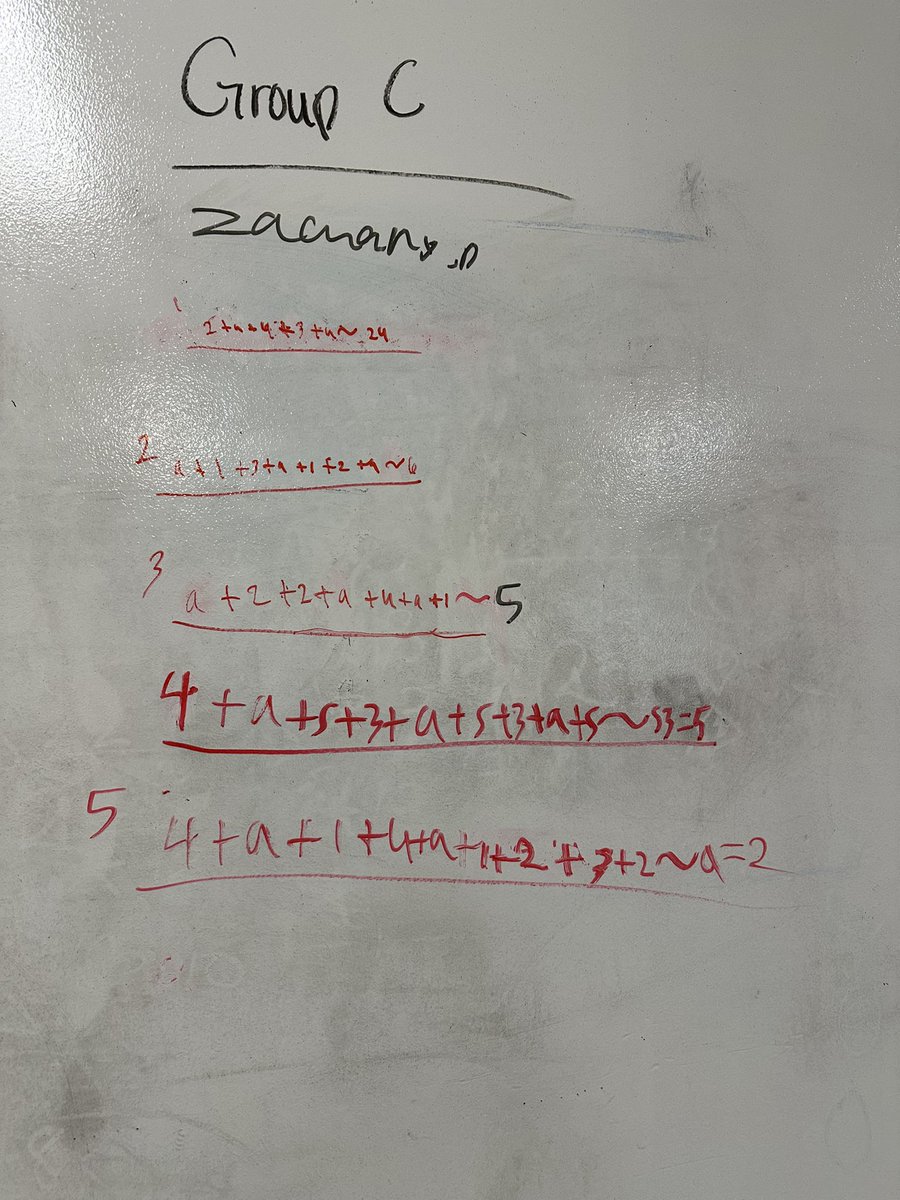 Group C
Zachary.D
1
2+a+4+3+4~24
2 a+1+3+a+1+2+a~6
3 a+2+2+a+4+a+1~5
4+a+5+3+a+5+3+a+5~53=5
5 4+a+1+4+a+1+2+3+2~a=2